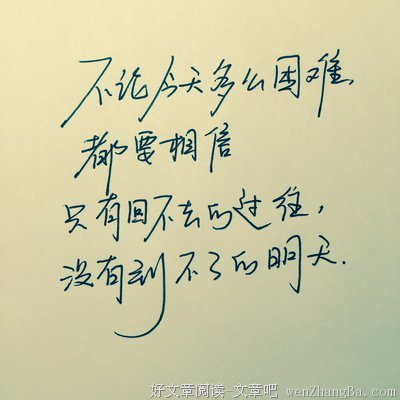 不论今天多么困难，
都要相信
只有回不去的过往，
没有到不了的明天.
好文章阅读-文章吧 wenZhangBa.com